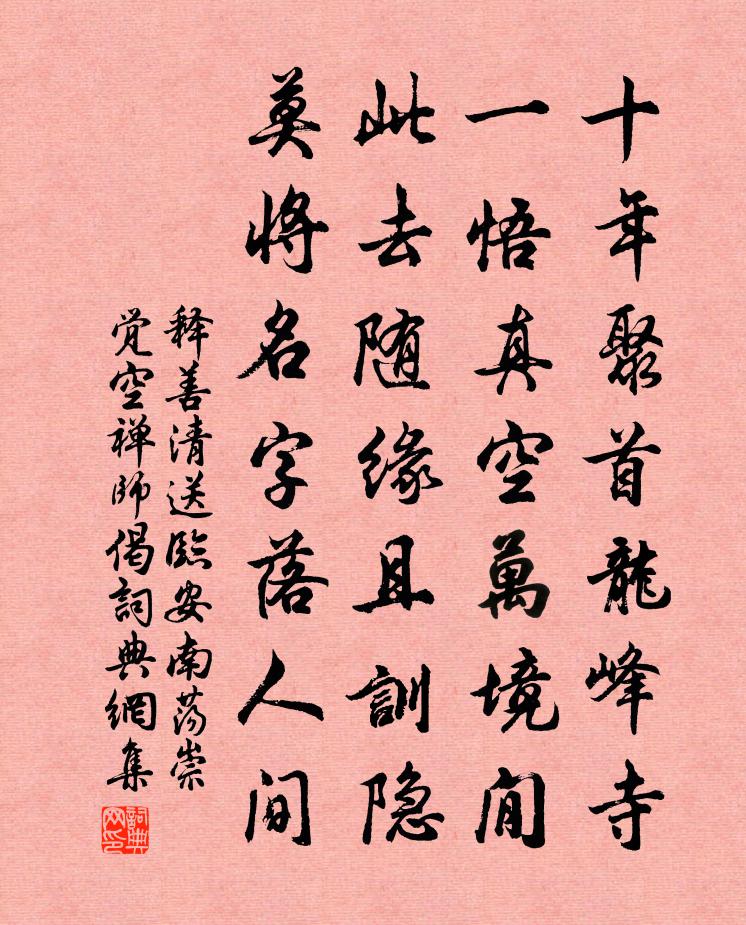 十年聚首龍峰寺
一悟真空萬境閒
此去随緣且訓隐
莫将名字落人间
释善清送臨安南荡崇
觉空禅師偈詞典網集
詞典网印